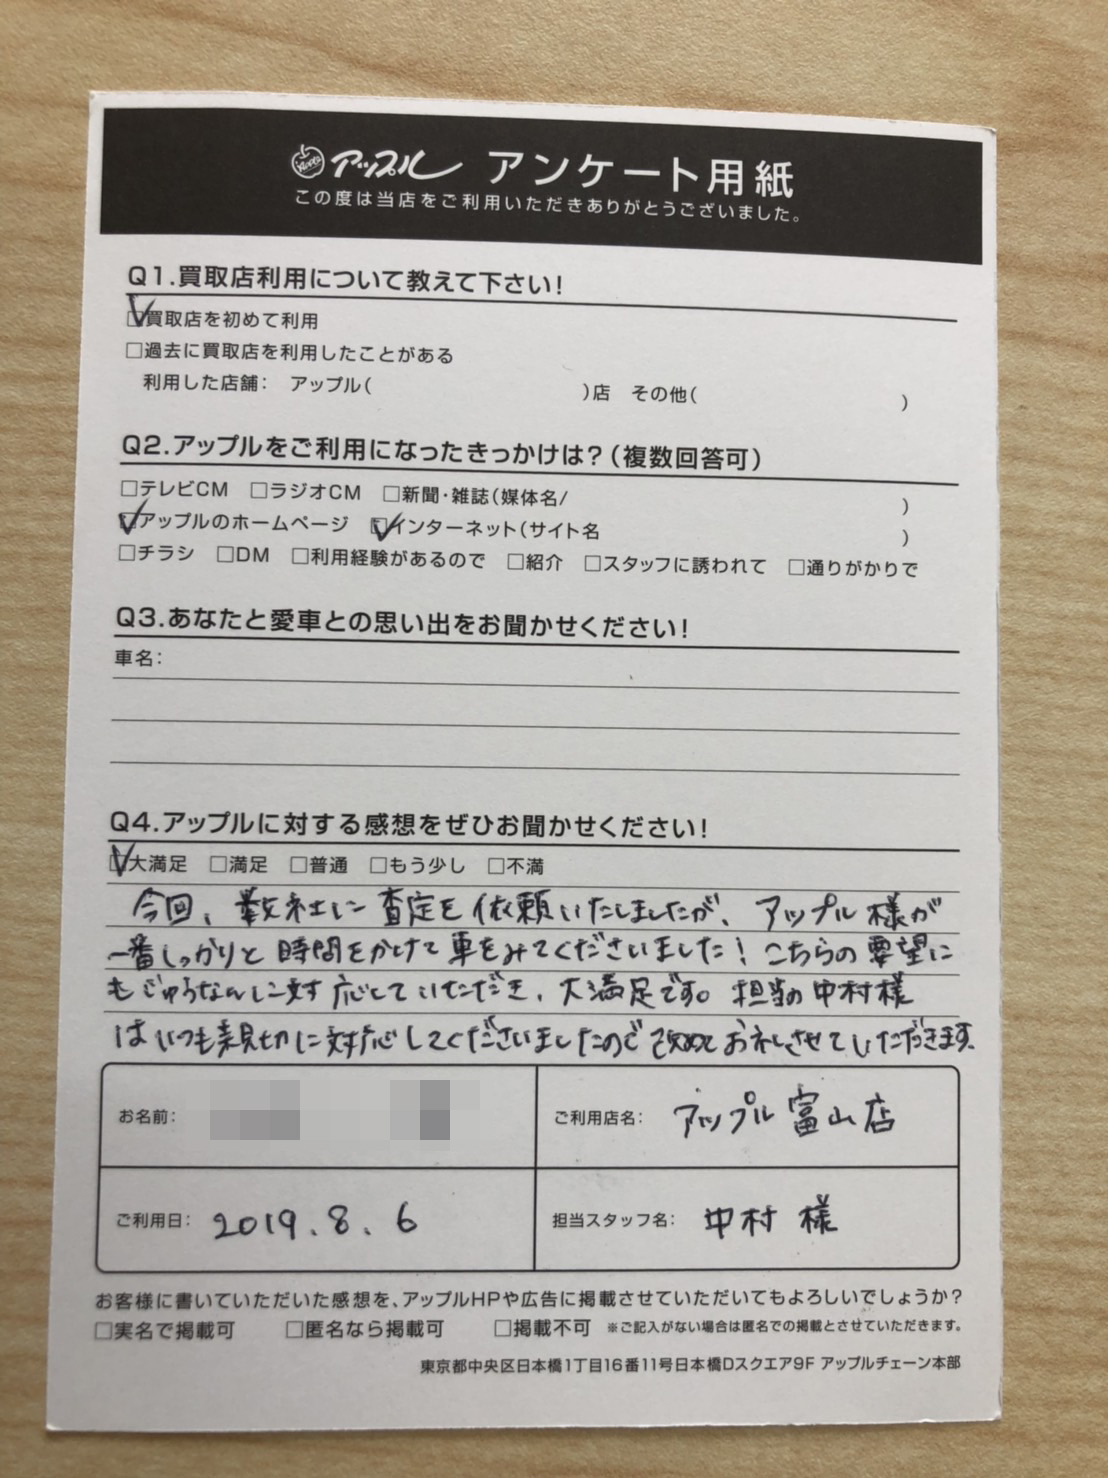 Apple アップル アンケート用紙
この度は当店をご利用いただきありがとうございました。
Q1.買取店利用について教えて下さい!
☑買取店を初めて利用
□過去に買取店を利用したことがある
利用した店舗: アップル( )店 その他( )
Q2.アップルをご利用になったきっかけは?(複数回答可)
□テレビCM □ラジオCM □新聞・雑誌(媒体名/ )
☑アップルのホームページ ☑インターネット(サイト名 )
□チラシ □DM □利用経験があるので □紹介 □スタッフに誘われて □通りがかりで
Q3.あなたと愛車との思い出をお聞かせください!
車名:
Q4.アップルに対する感想をぜひお聞かせください!
☑大満足 □満足 □普通 □もう少し □不満
今回、数社に査定を依頼いたしましたが、アップル様が
一番しっかりと時間をかけて車をみてくださいました!こちらの要望に
もじゅうなんに対応していただき、大満足です。担当の中村様
はいつも親切に対応してくださいましたので改めてお礼させていただきます。
お名前: ご利用店名: アップル富山店
ご利用日: 2019.8.6 担当スタッフ名: 中村様
お客様に書いていただいた感想を、アップルHPや広告に掲載させていただいてもよろしいでしょうか?
□実名で掲載可 □匿名なら掲載可 □掲載不可 ※ご記入がない場合は匿名での掲載とさせていただきます。
東京都中央区日本橋1丁目16番11号日本橋Dスクエア9F アップルチェーン本部